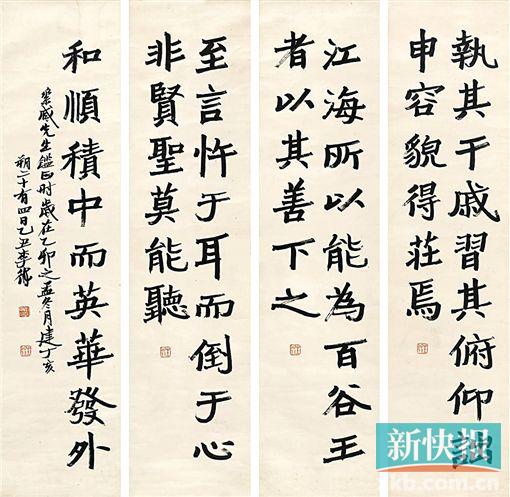 執其干戚習其俯仰詘
申容貌得莊焉
江海所以能為百谷王
者以其善下之
至言忤于耳而倒于心
非賢聖莫能聽
和順積中而英華發外
先生鑑正时歲在乙卯之孟冬月建丁亥
朔二十有四日乙丑李
新快報
xkb.com.cn